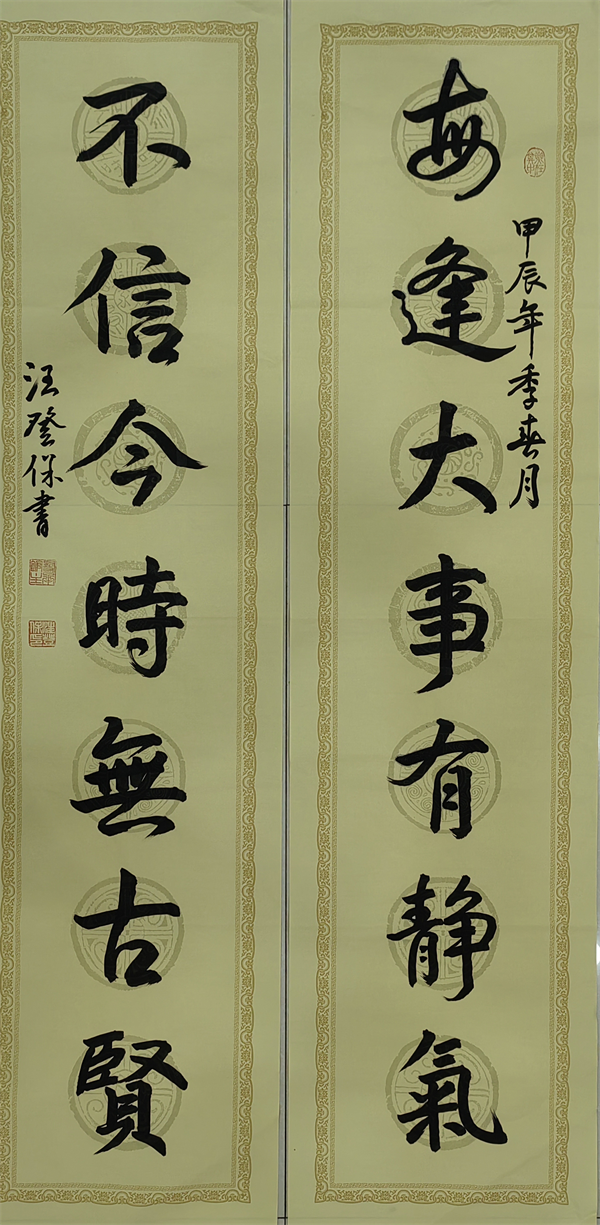 每逢大事有静氣
甲辰年季春月
不信今時無古賢
汪登保書